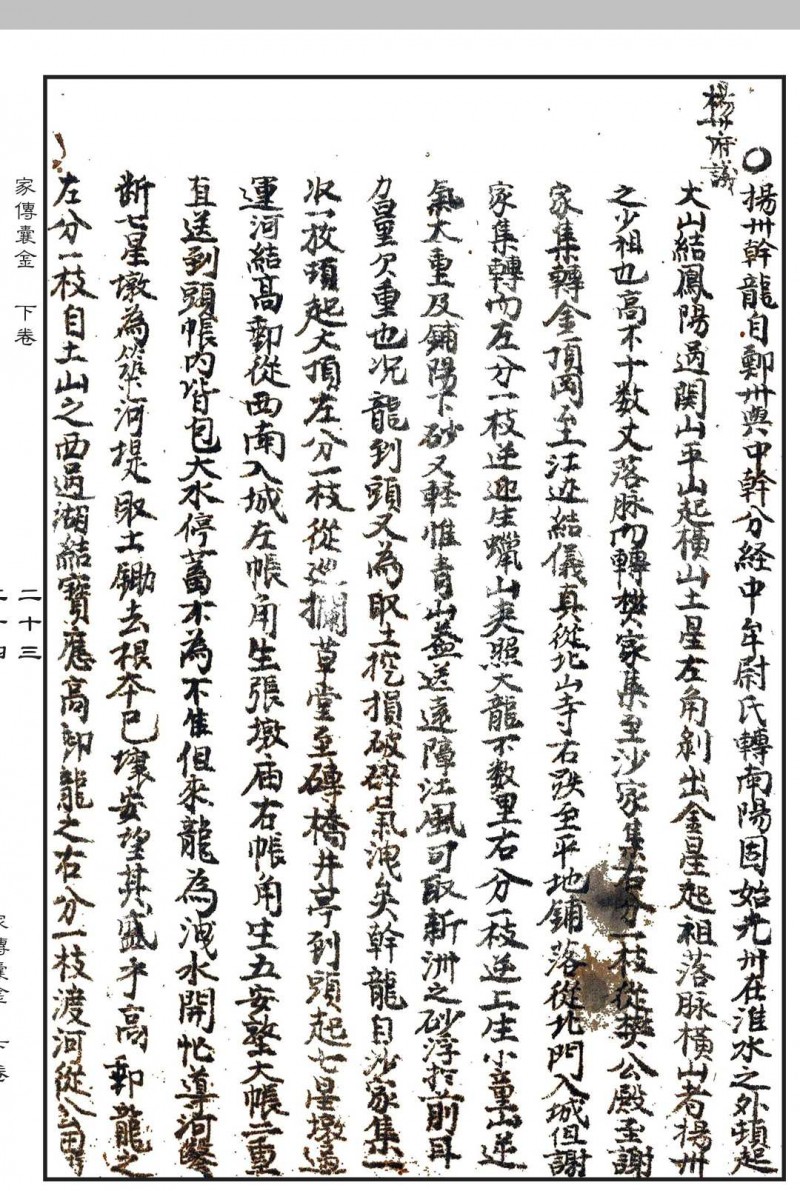 楊州府議
○揚州幹龍自鄭州與中幹分經中牟尉氏轉南陽固始光州在淮水之外頓起
大山結鳳陽過関山平山起橫山土星左角剝出金星起祖落脉橫山者楊州
之少祖也高不十数丈落脉內轉樊家集至沙家集右分一枝從樊公殿至謝
家集轉金頂岡至江边結儀真從北山寺右跌至平地鋪落從北門入城但謝
家集轉內左分一枝逆迎生蠟山夾照大龍不数里右分一枝逆上生小童山逆
氣大重及鋪陽下砂又軽惟青山盖送遠障江風可取新洲之砂浮於前耳
力量欠重也况龍到頭又為取土挖損破碎氣洩矣幹龍自沙家集一
次一按頓起大頂左分一枝從草堂至磚橋井亭到頭起七星墩過
運河結高郵從西南入城左帳角生張墩庙右帳角生五安墪大帳二重
直送到頭帳內皆包大水停蓄不為不佳但來龍為洩水開忙導河
断七星墩為築河堤取土鋤去根本已壞安望其盛乎高郵龍之
左分一枝自土山之西過湖結寶應高郵龍之右分一枝渡河從
家傳囊金 下卷
二十三